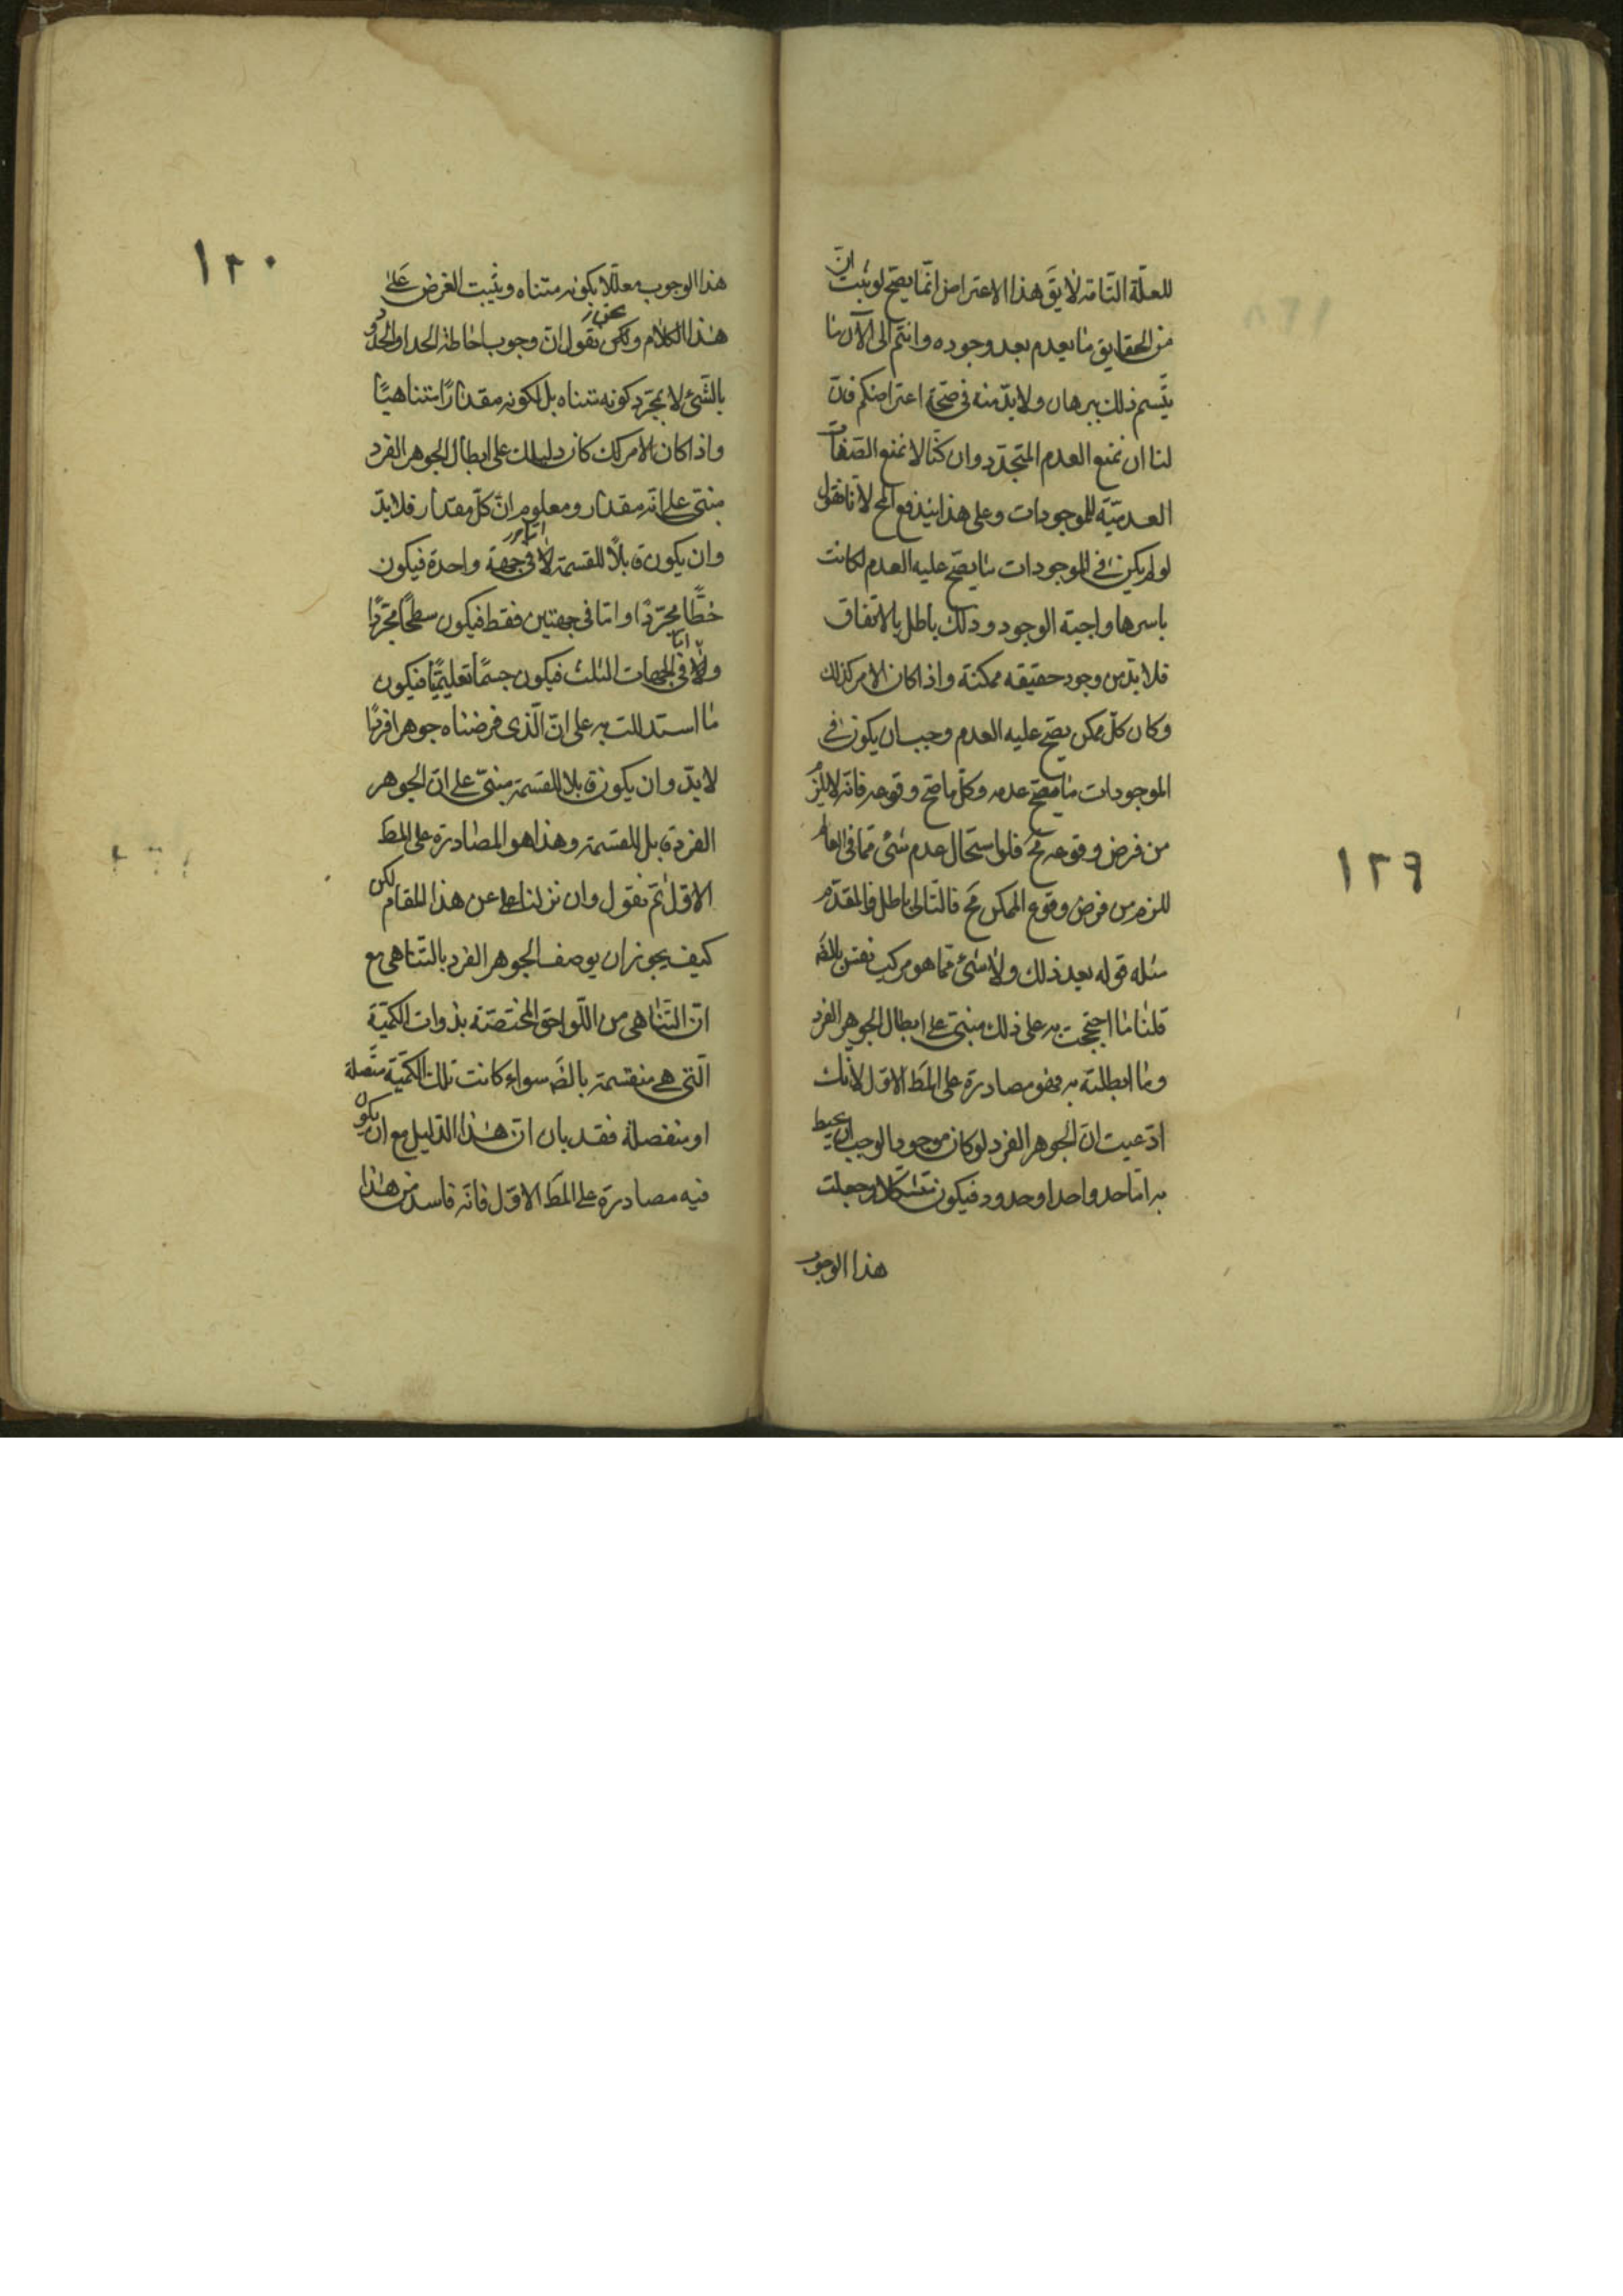 ١٢٩
للعلّة التّامّة لا يقَ هذا الاعتراض انّما يصحّ لو ثبت انّ
من الحقايق ما يعدم بعد وجوده وانتم الى الآن ما
ذلك ببرهان ولا بدّ منه فى صحّة اعتراضكم فان
لنا ان نمنع العدم المتجدّد وان كنّا لا نمنع الصّفات
العدميّة للموجودات وعلى هذا يندفع المح لانّا نقول
لو لم يكن فى الموجودات ما يصحّ عليه العدم لكانت
باسرها واجبة الوجود وذلك باطل بالاتفاق
فلا بدّ من وجود حقيقه ممكنة واذا كان الامر كذلك
وكان كلّ ممكن يصحّ عليه العدم وجب ان يكون فى
الموجودات ما يصحّ عدمه وكلّ ما صحّ وقوعه فانّه لا يلزم
من فرض وقوعه مح فلو استحال عدم شئ ممّا فى العالم
للزم من فرض وقوع الممكن مح فالتّالى باطل فالمقدّم
مثله قوله بعد ذلك ولا شئ ممّا هو مركب
قلنا ما احتججت به على ذلك مبنىّ على ابطال الجوهر الفرد
وما ابطلته به فهو مصادرة على المطَ الاوّل لانّك
ادّعيت انّ الجوهر الفرد لو كان موجودا لوجب ان يحيط
به امّا حد واحد او حدود فيكون متشكلا وجعلت
هذا الوجوب
١٣٠
هذا الوجوب معلّلا بكونه متناه ويثبت الغرض على
هذا الكلام ولكن نحن نقول انّ وجوب احاطة الحد او الحدود
بالشّئ لا بمجرّد كونه متناه بل لكونه مقدارًا متناهيًا
واذا كان الامر كك كان دليلك على ابطال الجوهر الفرد
مبنى على انّه مقدار ومعلوم انّ كلّ مقدار فلا بدّ
وان يكون قابلًا للقسمة امّا فى جهة واحدة فيكون
خطًّا مجرّدًا وامّا فى جهتين فقط فيكون سطحًا مجرّدًا
وامّا فى الجهات الثلث فيكون جسمًا تعليميًّا فيكون
ما استدللت به على انّ الّذى فرضناه جوهرا فردًا
لا بدّ وان يكون قابلا للقسمة مبنىّ على انّ الجوهر
الفرد قابل للقسمة وهذا هو المصادرة على المطَ
الاوّل ثم نقول وان نزلنا عن هذا المقام لكن
كيف يجوز ان يوصف الجوهر الفرد بالتّناهى مع
انّ التّناهى من اللّواحق المختصّة بذوات الكميّة
الّتى هى منقسمة بالضَ سواء كانت تلك الكميّة متّصلة
او منفصلة فقد بان انّ هذا الدّليل مع ان يكون
فيه مصادرة على المطَ الاوّل فانّه فاسد من هذا